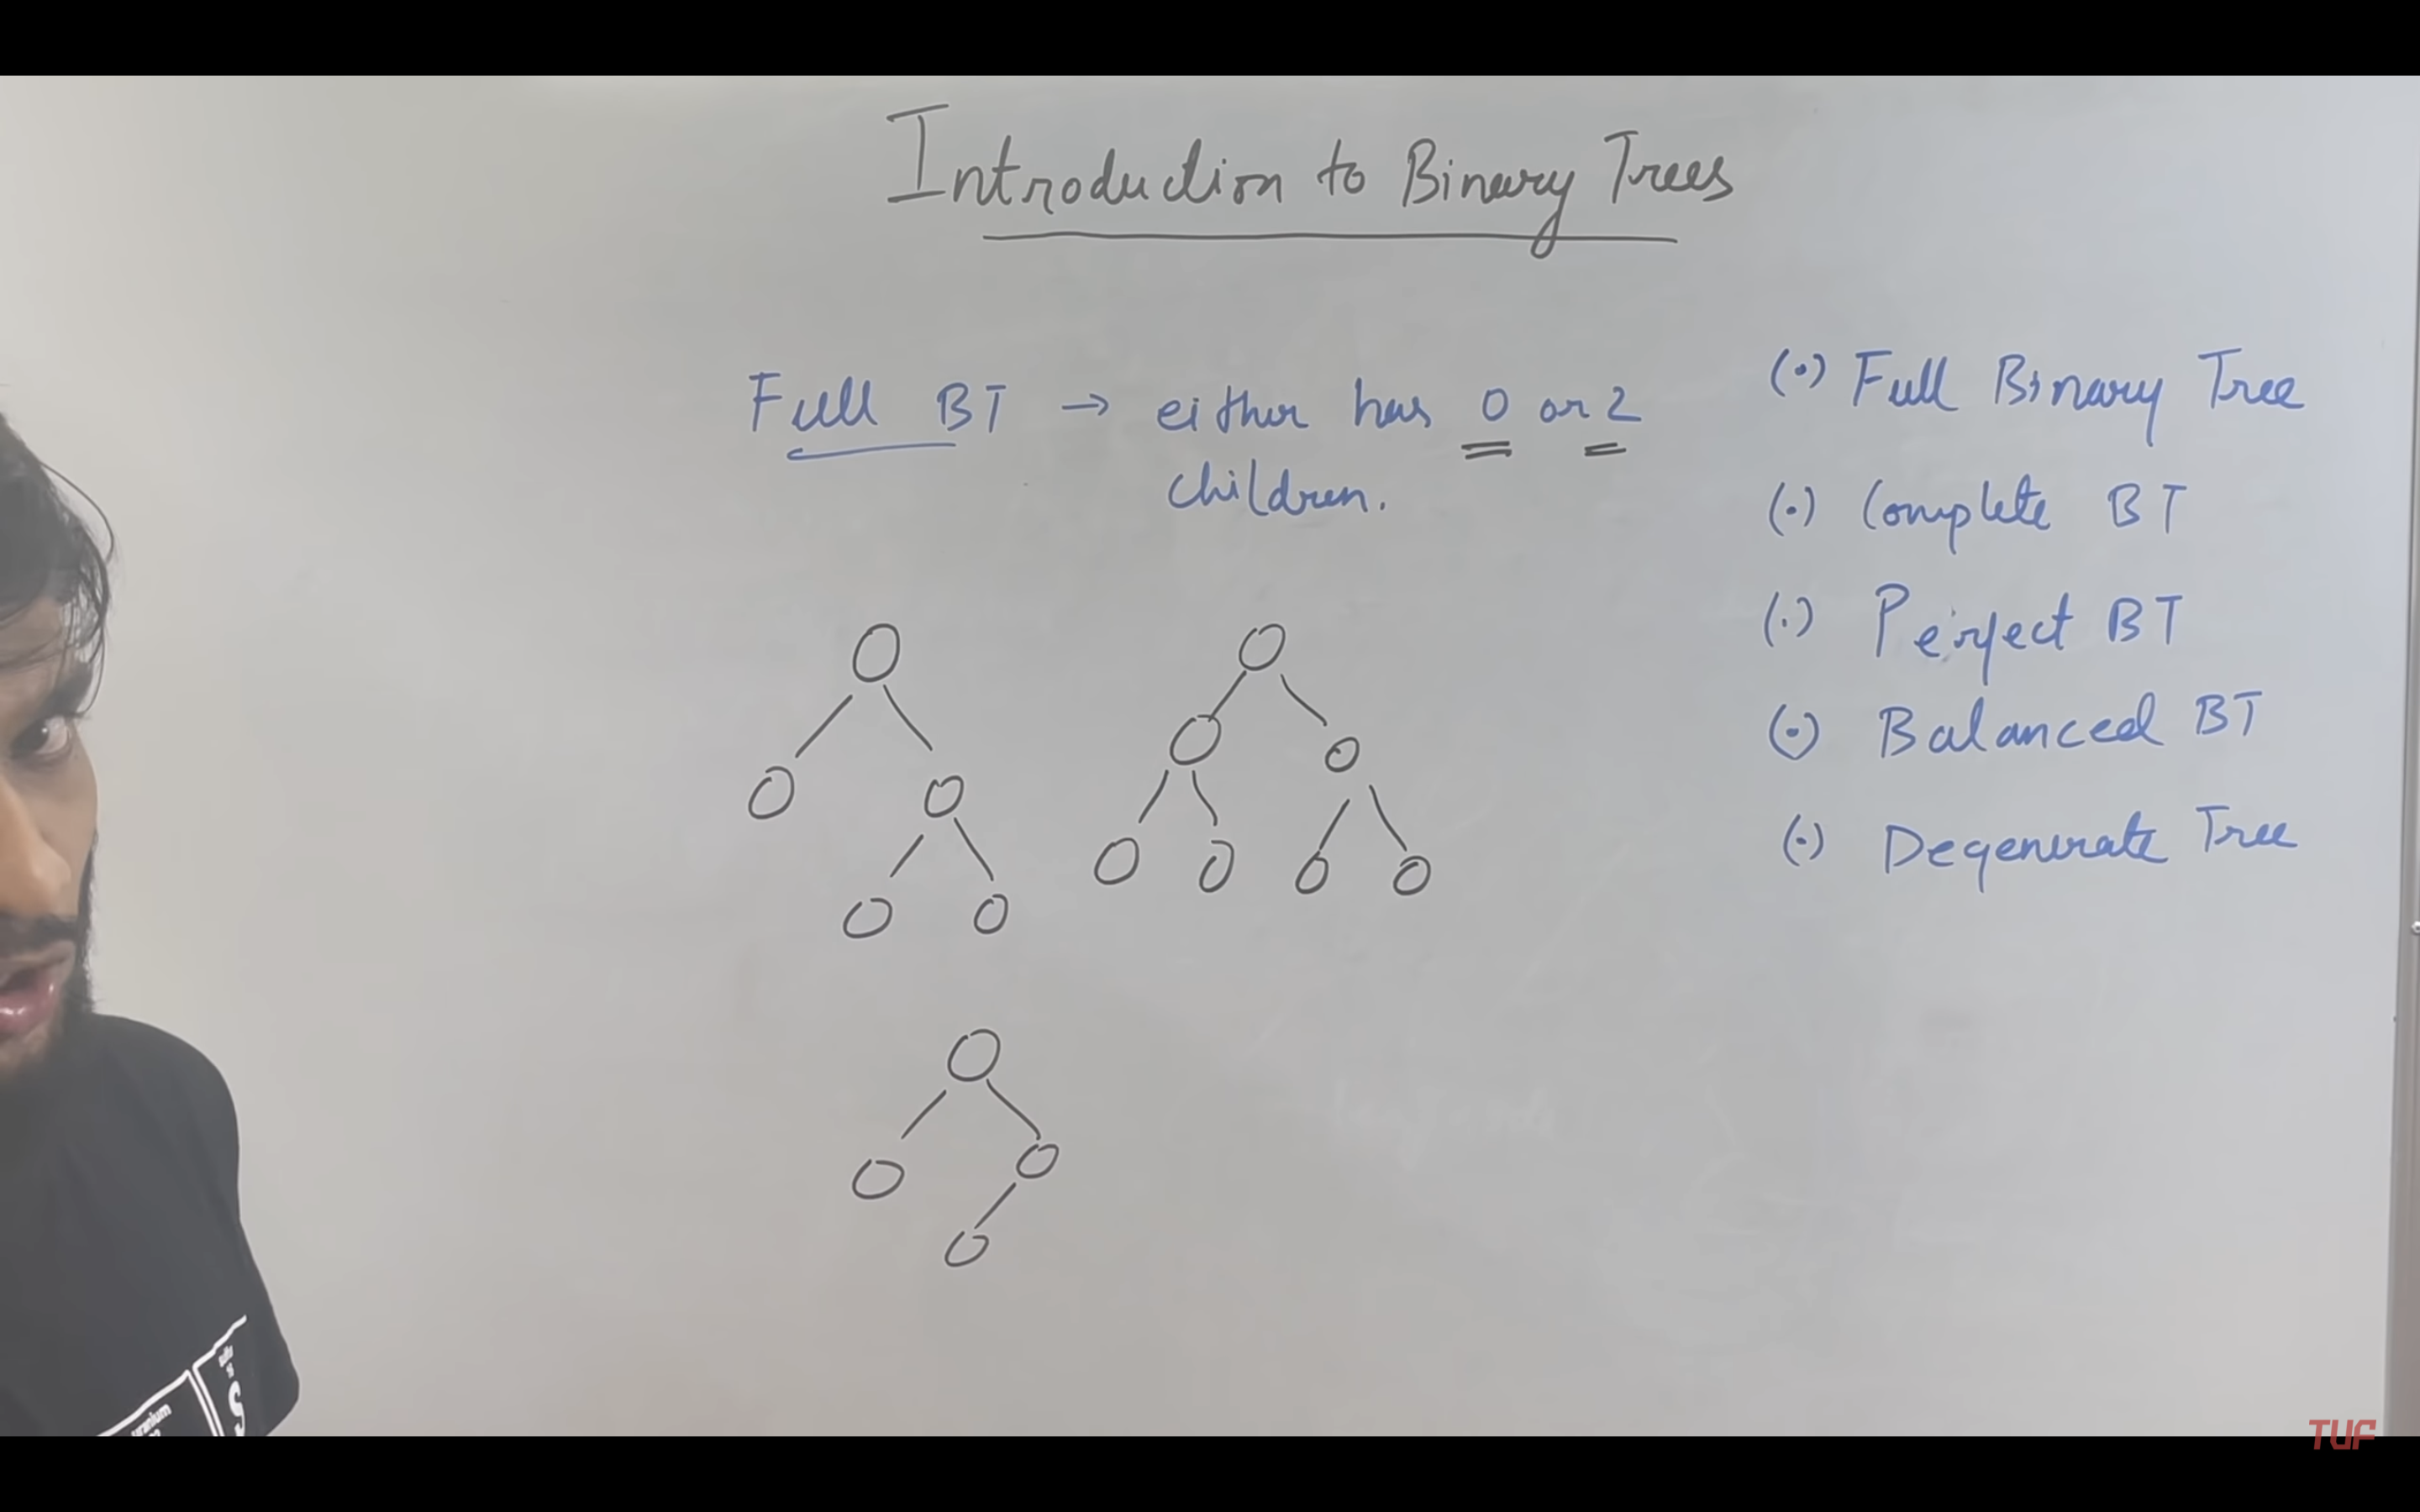 Introduction to Binary Trees
Full BT → either has 0 or 2
children.
(•) Full Binary Tree
(•) Complete BT
(•) Perfect BT
(•) Balanced BT
(•) Degenerate Tree
TUF